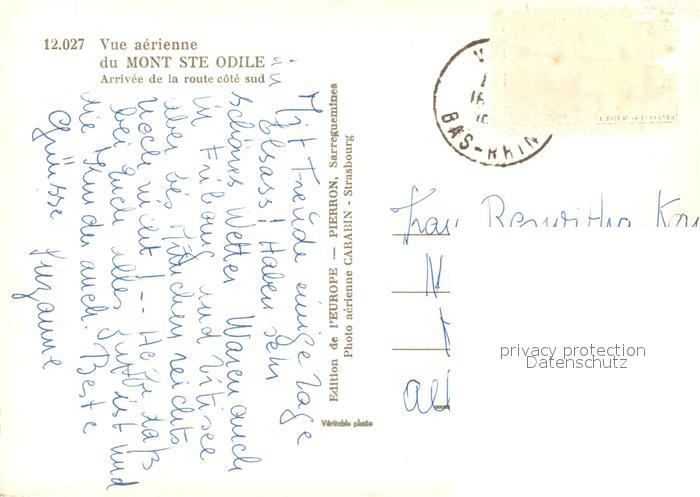 12.027 Vue aérienne
du MONT STE ODILE
Arrivée de la route côté sud
Mit Freude einige Tage
im Elsass! Haben sehr
schönes Wetter Waren auch
in Fribourg und Titisee
aber bis München reichts
noch nicht! -- Hoffe daß
bei Euch alles gut ist und
die Freunde auch. Beste
Grüsse Suzanne
Edition de l'EUROPE — PIERRON, Sarreguemines
Photo aérienne CARABIN - Strasbourg
Véritable photo
BAS-RHIN
Frau Roswitha
privacy protection
Datenschutz